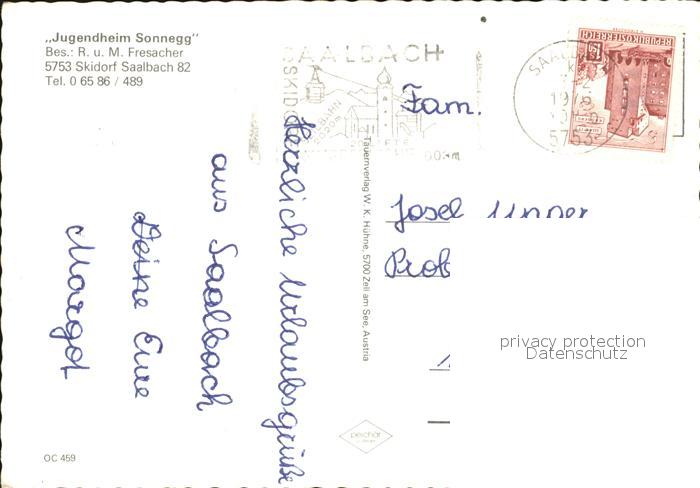 „Jugendheim Sonnegg"
Bes.: R. u. M. Fresacher
5753 Skidorf Saalbach 82
Tel. 0 65 86 / 489
SAALBACH
Fam.
Josef
Prob
Herzliche Urlaubsgrüße
aus Saalbach
Deine Eure
Margot
Tauernverlag W. K. Hühne, 5700 Zell am See, Austria
REPUBLIK ÖSTERREICH
5753
privacy protection
Datenschutz
peichär
OC 459